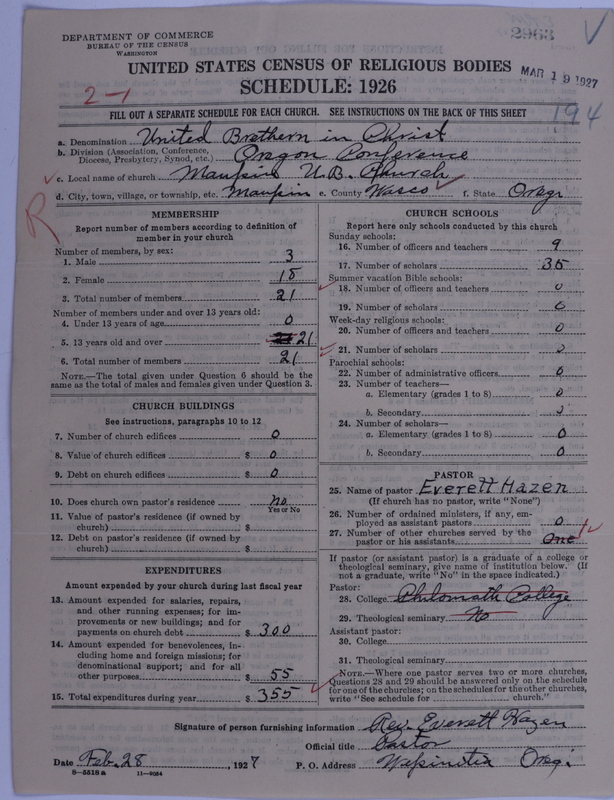 DEPARTMENT OF COMMERCE
BUREAU OF THE CENSUS
WASHINGTON
2963
UNITED STATES CENSUS OF RELIGIOUS BODIES
MAR 19 1927
SCHEDULE: 1926
2-1
194
FILL OUT A SEPARATE SCHEDULE FOR EACH CHURCH. SEE INSTRUCTIONS ON THE BACK OF THIS SHEET
a. Denomination United Brethern in Christ
b. Division (Association, Conference, Diocese, Presbytery, Synod, etc.) Oregon Conference
c. Local name of church Maupin U.B. Church
d. City, town, village, or township, etc. Maupin e. County Wasco f. State Oreg.
R
MEMBERSHIP
Report number of members according to definition of member in your church
Number of members, by sex:
1. Male 3
2. Female 18
3. Total number of members 21
Number of members under and over 13 years old:
4. Under 13 years of age 0
5. 13 years old and over 21
6. Total number of members 21
NOTE.—The total given under Question 6 should be the same as the total of males and females given under Question 3.
CHURCH BUILDINGS
See instructions, paragraphs 10 to 12
7. Number of church edifices 0
8. Value of church edifices $ 0
9. Debt on church edifices $ 0
10. Does church own pastor's residence no
Yes or No
11. Value of pastor's residence (if owned by church) $
12. Debt on pastor's residence (if owned by church) $
EXPENDITURES
Amount expended by your church during last fiscal year
13. Amount expended for salaries, repairs, and other running expenses; for improvements or new buildings; and for payments on church debt $ 300
14. Amount expended for benevolences, including home and foreign missions; for denominational support; and for all other purposes $ 55
15. Total expenditures during year $ 355
CHURCH SCHOOLS
Report here only schools conducted by this church
Sunday schools:
16. Number of officers and teachers 9
17. Number of scholars 35
Summer vacation Bible schools:
18. Number of officers and teachers 0
19. Number of scholars 0
Week-day religious schools:
20. Number of officers and teachers 0
21. Number of scholars 0
Parochial schools:
22. Number of administrative officers 0
23. Number of teachers—
a. Elementary (grades 1 to 8) 0
b. Secondary 0
24. Number of scholars—
a. Elementary (grades 1 to 8) 0
b. Secondary 0
PASTOR
25. Name of pastor Everett Hazen
(If church has no pastor, write "None")
26. Number of ordained ministers, if any, employed as assistant pastors 0
27. Number of other churches served by the pastor or his assistants One 1
If pastor (or assistant pastor) is a graduate of a college or theological seminary, give name of institution below. (If not a graduate, write "No" in the space indicated.)
Pastor:
28. College Philomath College
29. Theological seminary No
Assistant pastor:
30. College
31. Theological seminary
NOTE.—Where one pastor serves two or more churches, Questions 28 and 29 should be answered only on the schedule for one of the churches; on the schedules for the other churches, write "See schedule for church."
Signature of person furnishing information Rev. Everett Hazen
Official title Pastor
Date Feb. 28, 1927 P. O. Address Wapinitia Oreg.
8—5518 a 11—9034